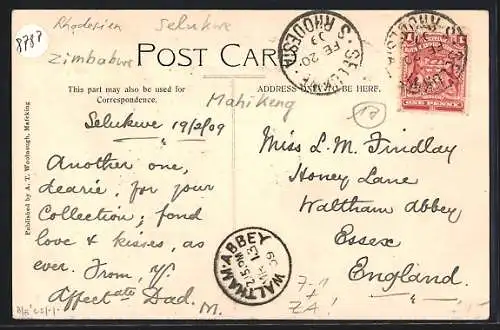 8787
Rhodesien
Selukwe
Zimbabwe
POST CARD
This part may also be used for
Correspondence.
ADDRESS TO BE HERE.
Mahikeng
S. RHODESIA
SELUKWE
FE 20
09
ONE PENNY
Selukwe 19/2/09
Another one,
dearie, for your
Collection; fond
love & kisses, as
ever. From, yr
Affectate Dad.
M.
Miss L. M. Findlay
Honey Lane
Waltham Abbey
Essex
England.
WALTHAM-ABBEY
2.15PM
MR 13
09
Published by A. T. Woobaugh, Mafeking